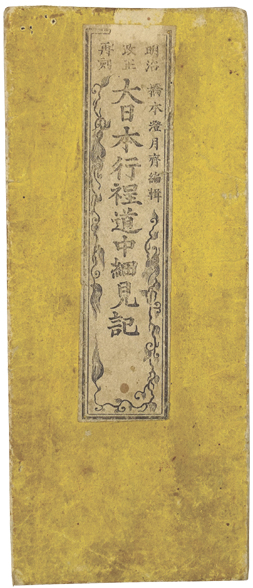 明治
改正
再刻
橋本澄月齊編輯
大日本行程道中細見記